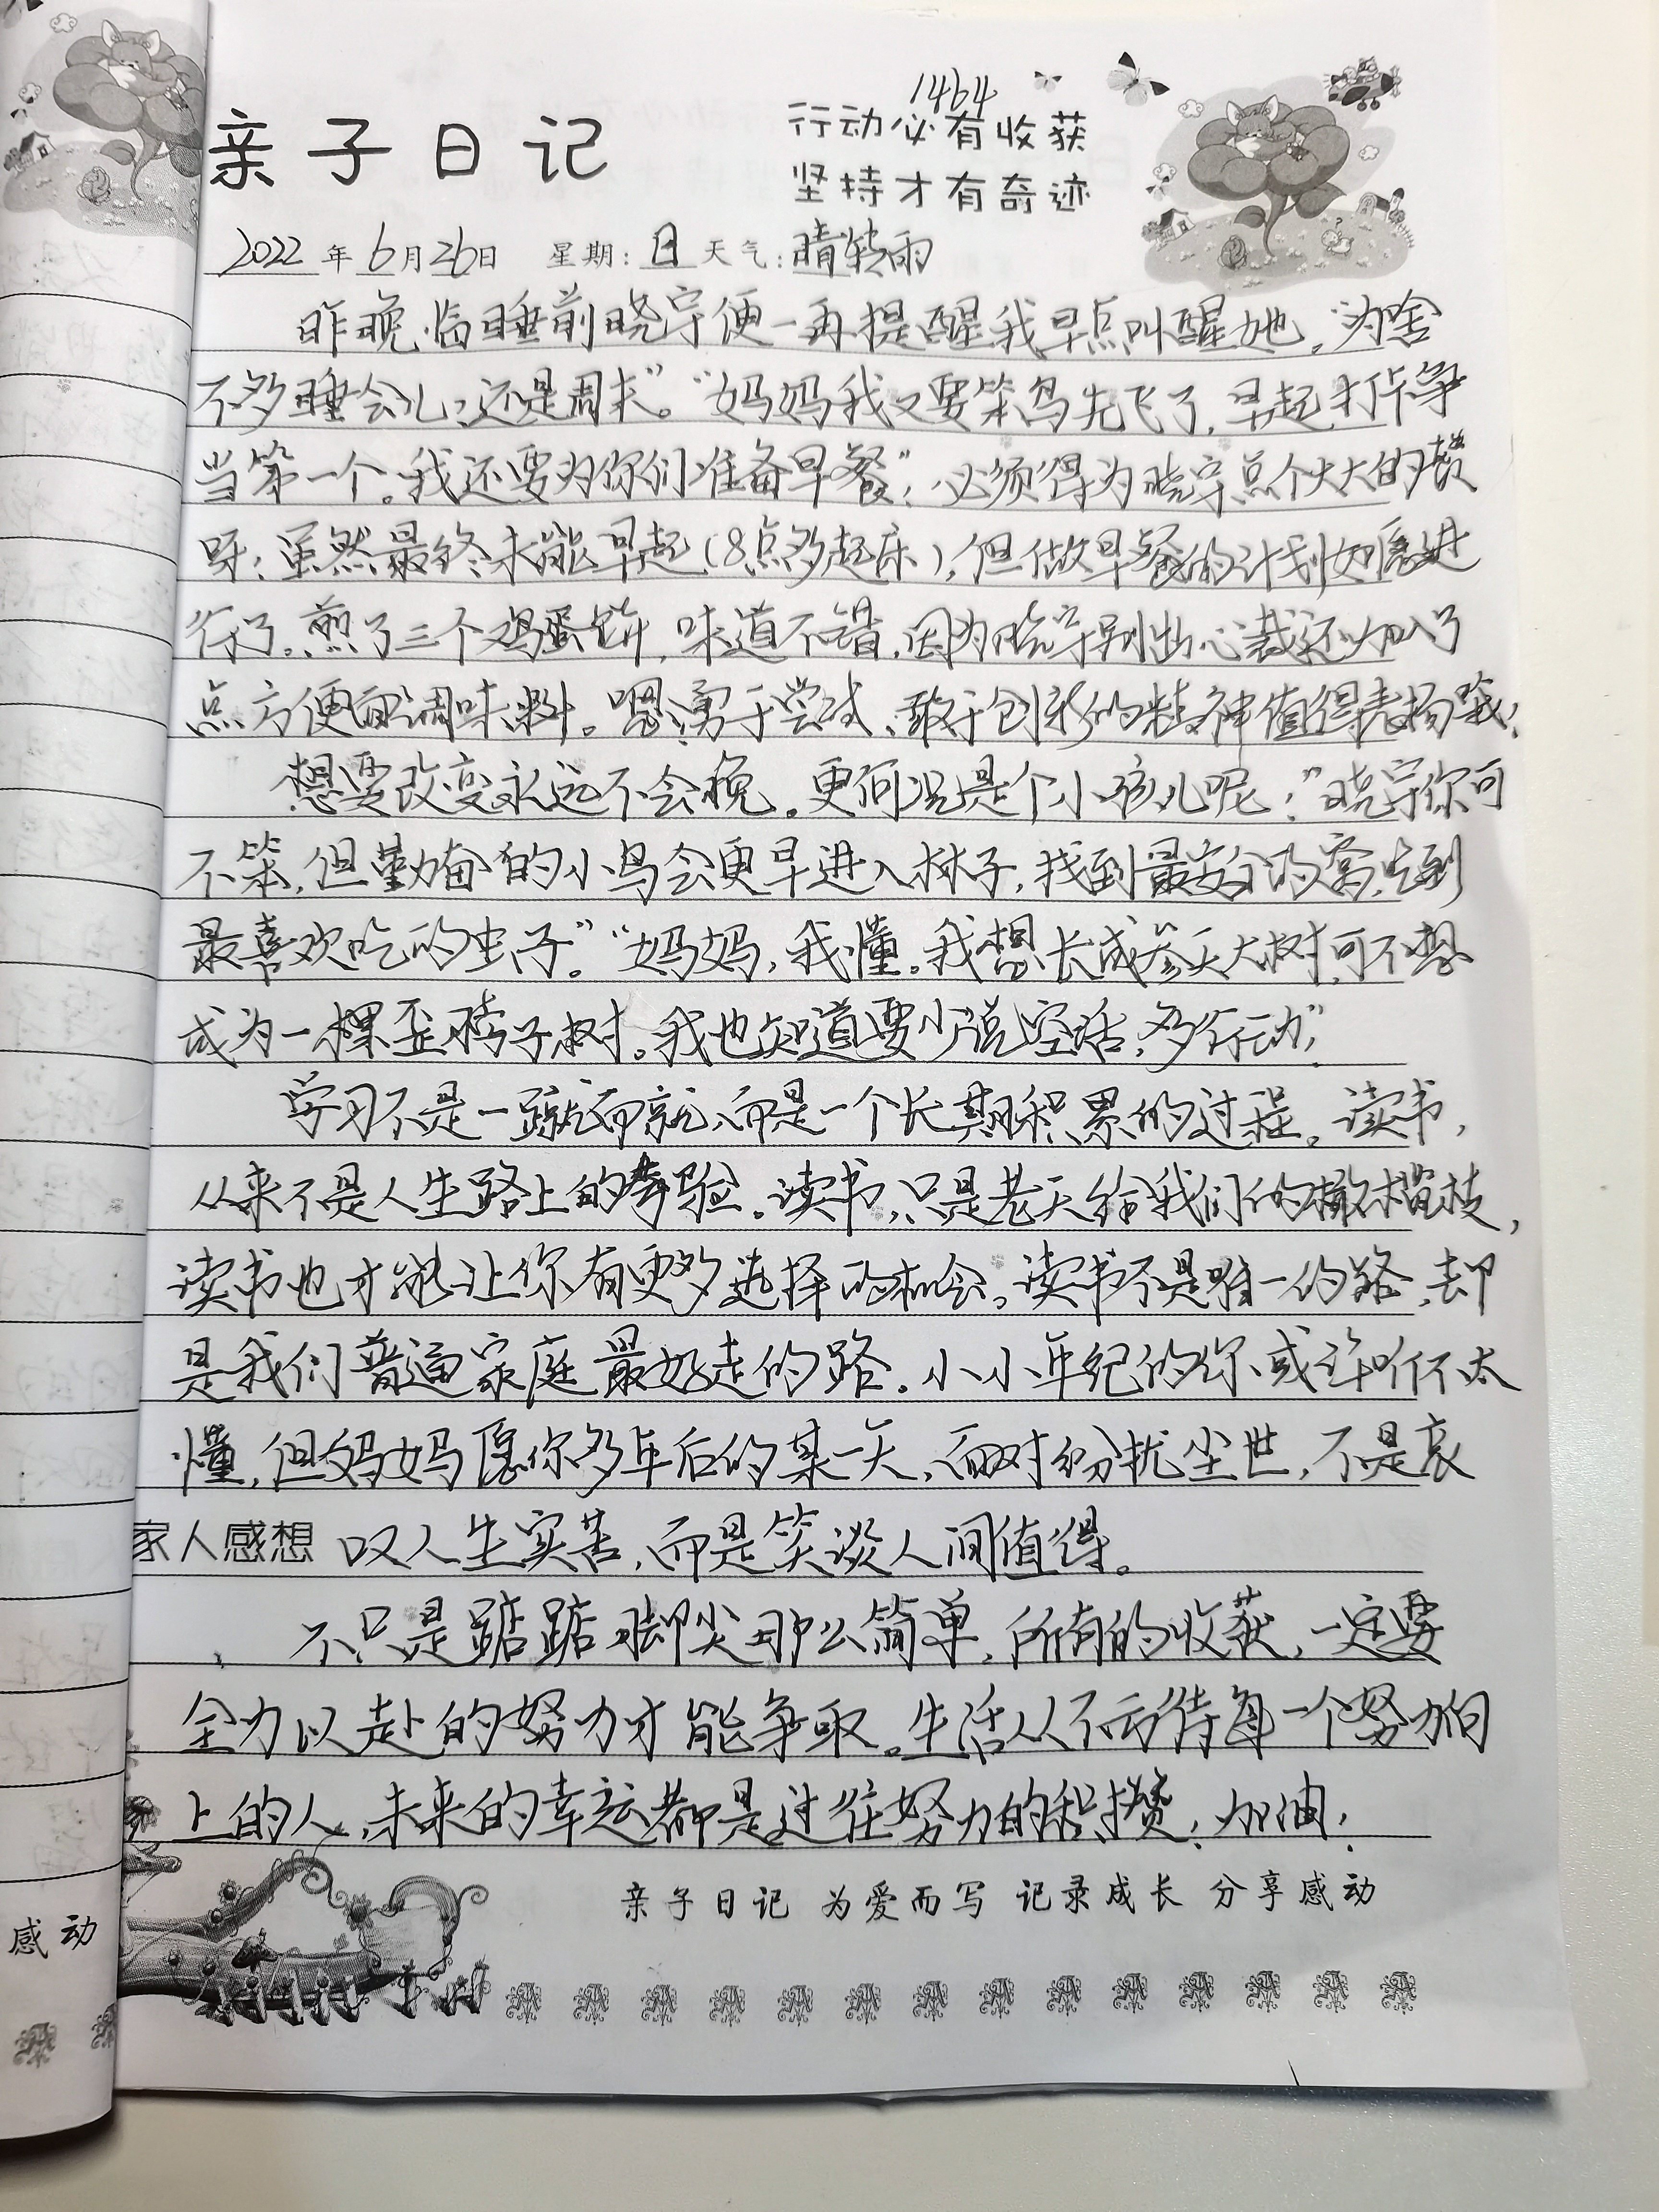 1464
亲子日记
行动必有收获
坚持才有奇迹
2022年6月26日 星期:日 天气:晴转雨
昨晚临睡前晓宇便一再提醒我早点叫醒她,“为啥
不多睡会儿,还是周末”。“妈妈我又要笨鸟先飞了,早起打卡争
当第一个。我还要为你们准备早餐”,必须得为晓宇点个大大的赞
呀!虽然最终未能早起(8点多起床),但做早餐的计划如愿进
行了。煎了三个鸡蛋饼,味道不错,因为晓宇别出心裁还加入了
点方便面调味料。嗯,勇于尝试、敢于创新的精神值得表扬哦!
想要改变永远不会晚,更何况是个小孩儿呢!“晓宇你可
不笨,但勤奋的小鸟会更早进入林子,找到最安全的窝,吃到
最喜欢吃的虫子。”“妈妈,我懂。我想长成参天大树,可不想
成为一棵歪脖子树。我也知道要少说空话,多行动”
学习不是一蹴而就,而是一个长期积累的过程。读书,
从来不是人生路上的考验。读书,只是老天给我们的橄榄枝,
读书也才能让你有更多选择的机会。读书不是唯一的路,却
是我们普通家庭最好走的路。小小年纪的你或许听不太
懂,但妈妈愿你多年后的某一天,面对纷扰尘世,不是哀
家人感想 叹人生实苦,而是笑谈人间值得。
不只是踮踮脚尖那么简单,所有的收获,一定要
全力以赴的努力才能争取。生活从不亏待每一个努力向
上的人,未来的幸运都是过往努力的积攒!加油!
亲子日记 为爱而写 记录成长 分享感动
感动